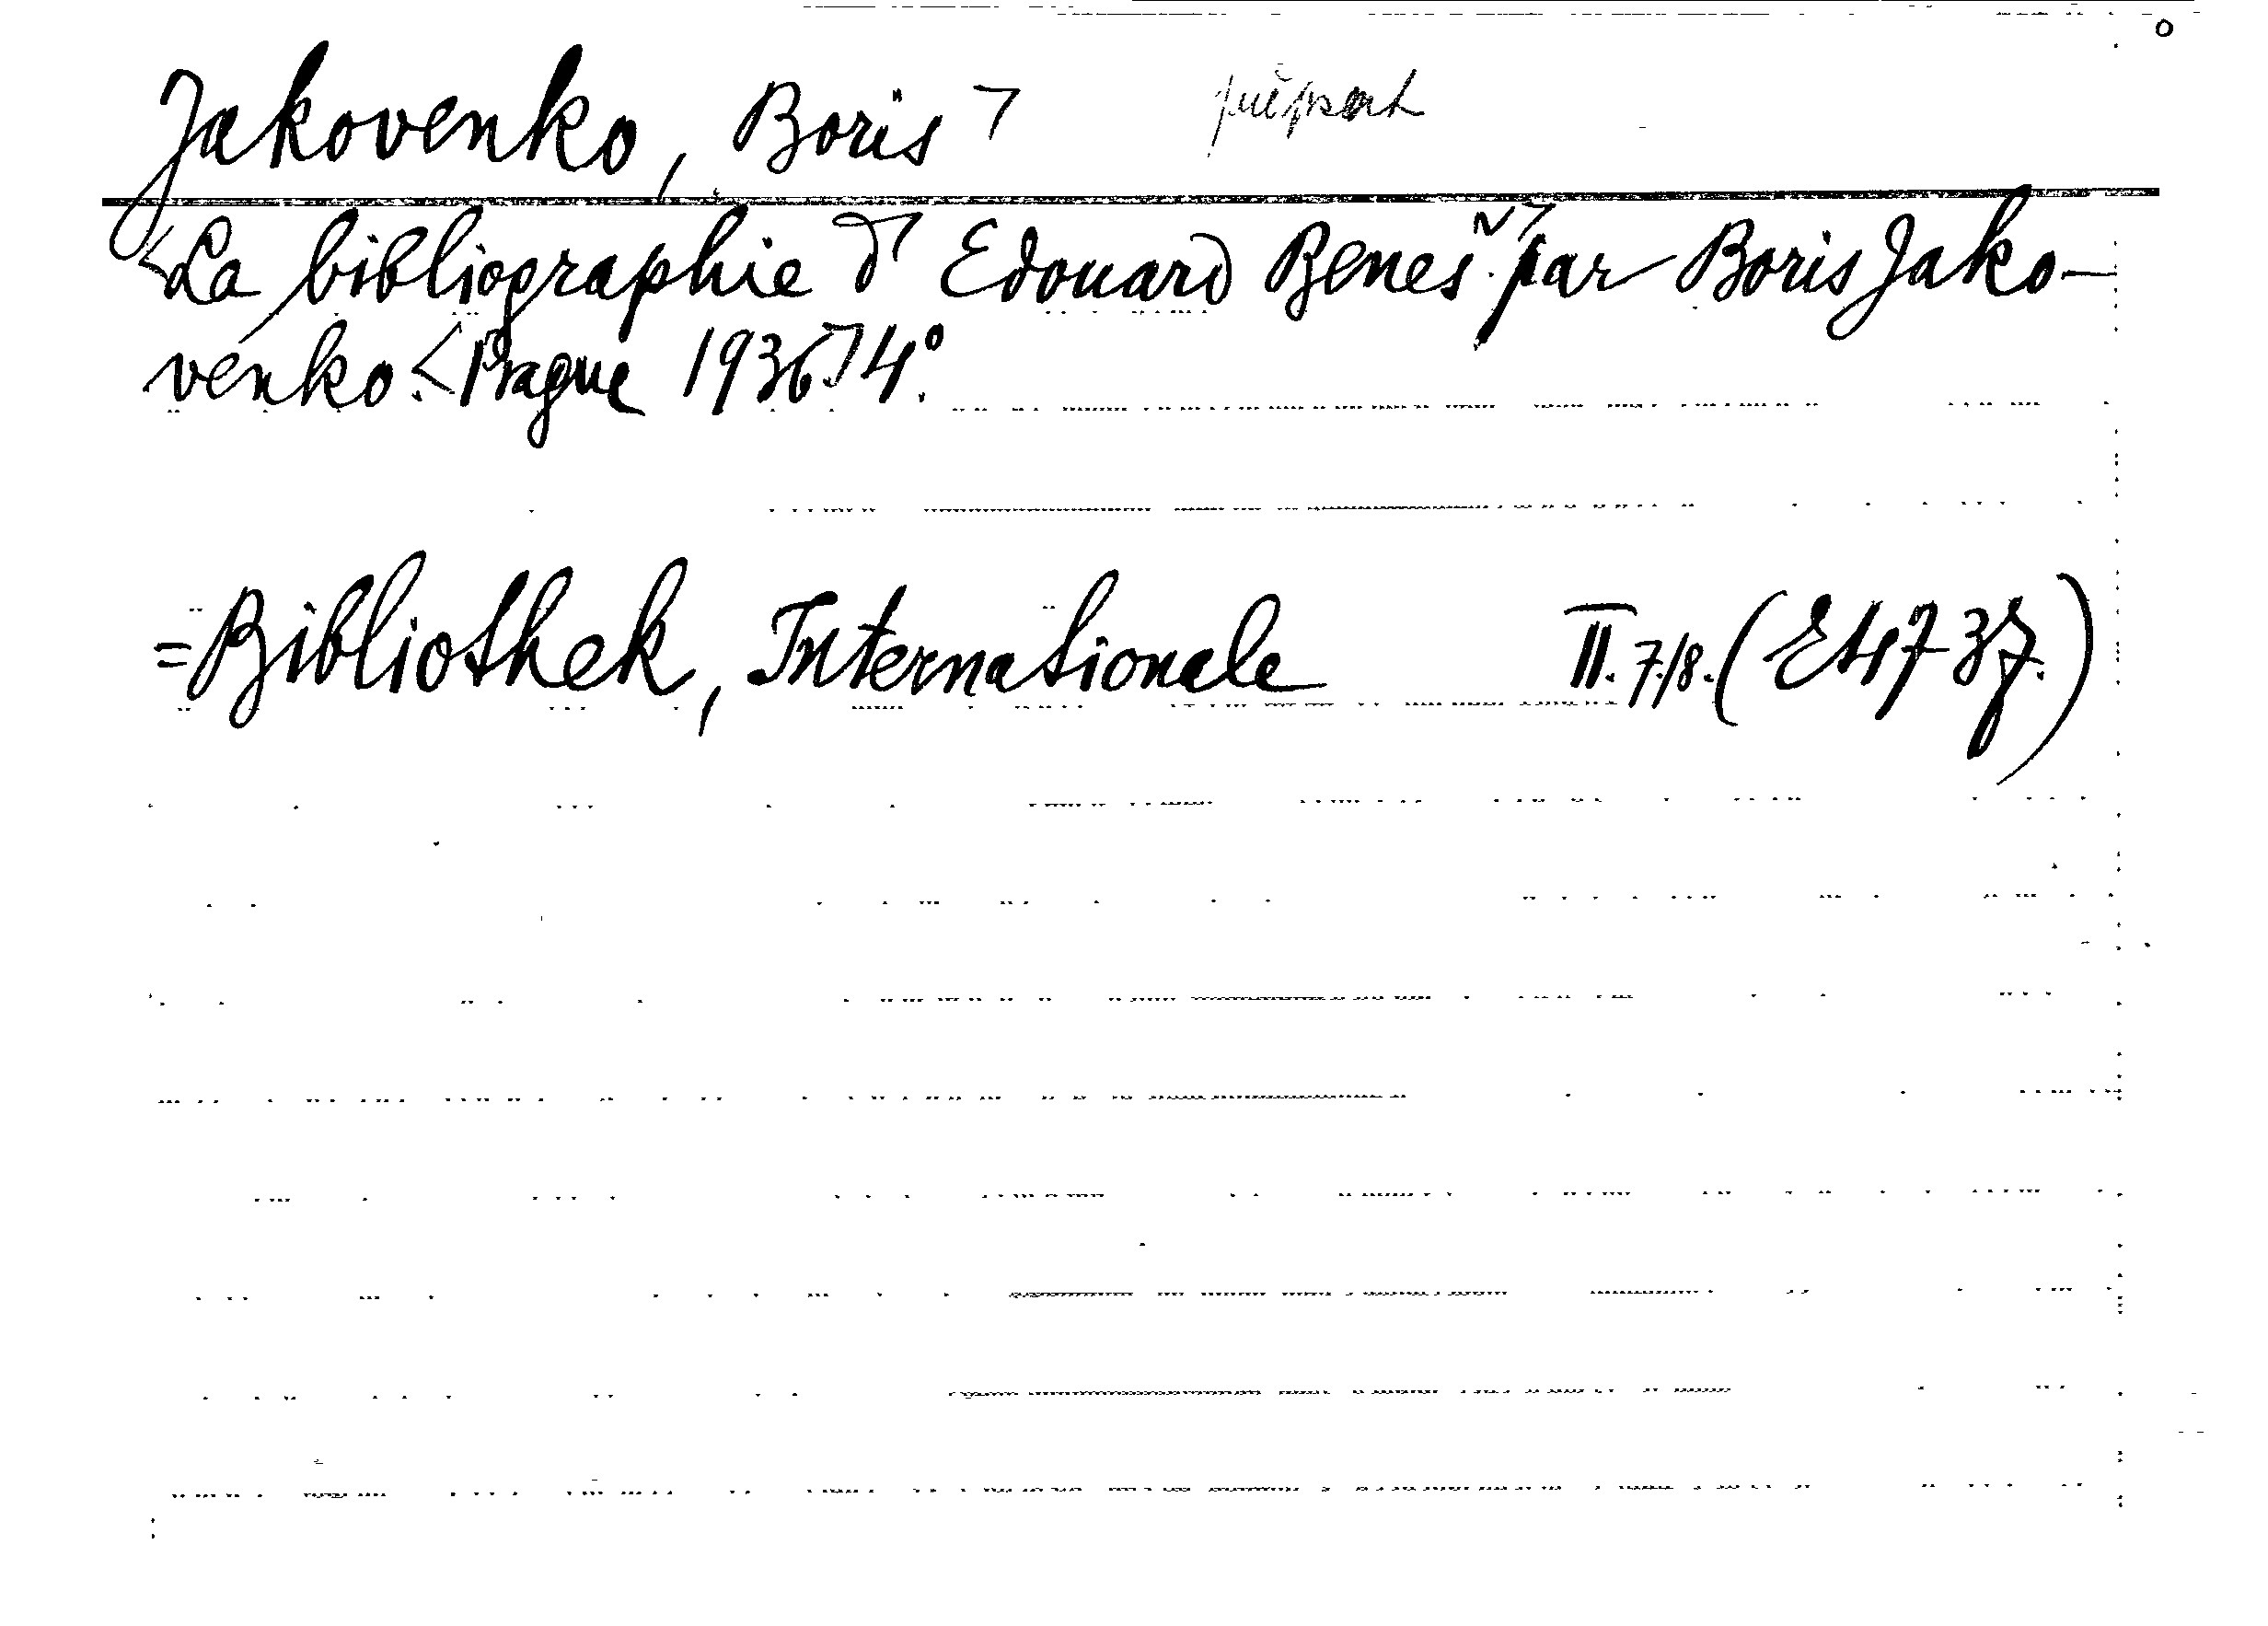 Jakovenko, Boris ┐ přepsat
<La bibliographie d' Edouard Beneš┐ par Boris Jako-
venko. <Prague 1936┐ 4°.
=Bibliothek, Internationale II. 7./8. (